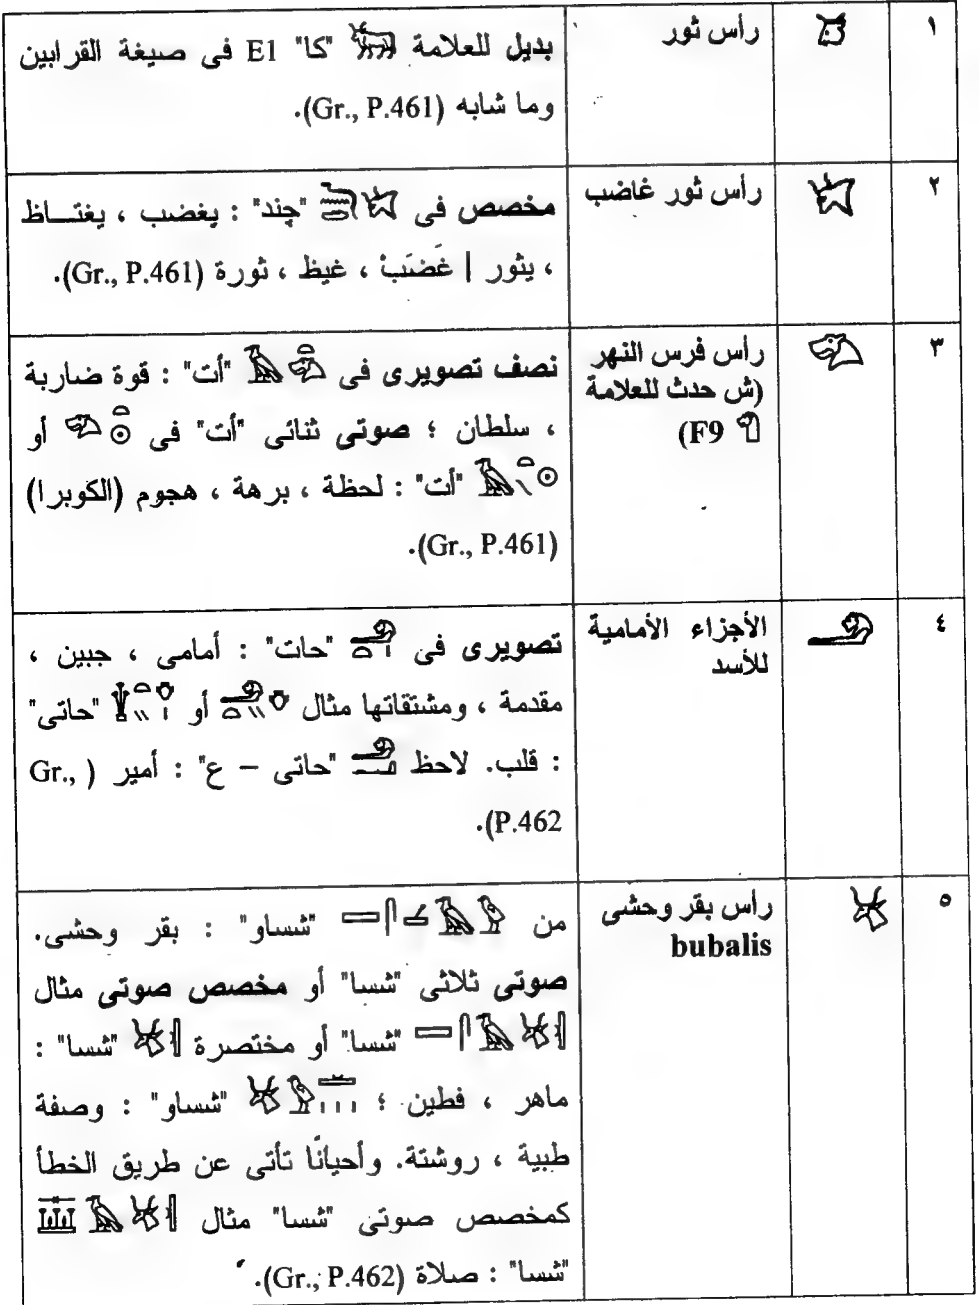 ١ رأس ثور بديل للعلامة "كا" E1 فى صيغة القرابين
وما شابه (Gr., P.461).
٢ رأس ثور غاضب مخصص فى "چند" : يغضب ، يغتـــاظ
، يثور | غَضَبْ ، غيظ ، ثورة (Gr., P.461).
٣ رأس فرس النهر
(ش حدث للعلامة
F9)
نصف تصويرى فى "أت" : قوة ضاربة
، سلطان ؛ صوتى ثنائى "أت" فى أو
"أت" : لحظة ، برهة ، هجوم (الكوبرا)
(Gr., P.461).
٤ الأجزاء الأمامية
للأسد
تصويرى فى "حات" : أمامى ، جبين ،
مقدمة ، ومشتقاتها مثال أو "حاتى"
: قلب. لاحظ "حاتى – ع" : أمير (Gr.,
P.462).
٥ رأس بقر وحشى
bubalis
من "شساو" : بقر وحشى.
صوتى ثلاثى "شسا" أو مخصص صوتى مثال
"شسا" أو مختصرة "شسا" :
ماهر ، فطين ؛ "شساو" : وصفة
طبية ، روشتة. وأحيانًا تأتى عن طريق الخطأ
كمخصص صوتى "شسا" مثال
"شسا" : صلاة (Gr., P.462).